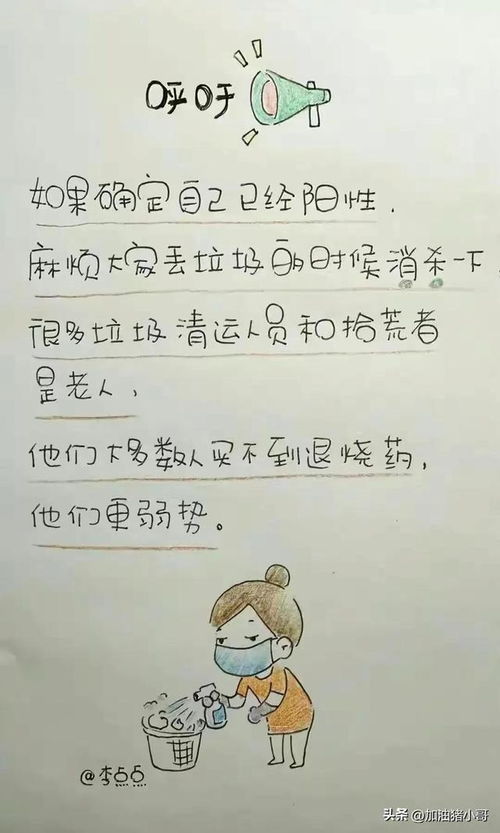 呼吁
如果确定自己已经阳性.
麻烦大家丢垃圾的时候消杀一下,
很多垃圾清运人员和拾荒者
是老人,
他们大多数人买不到退烧药,
他们更弱势。
@李点点
头条 @加油猪小哥